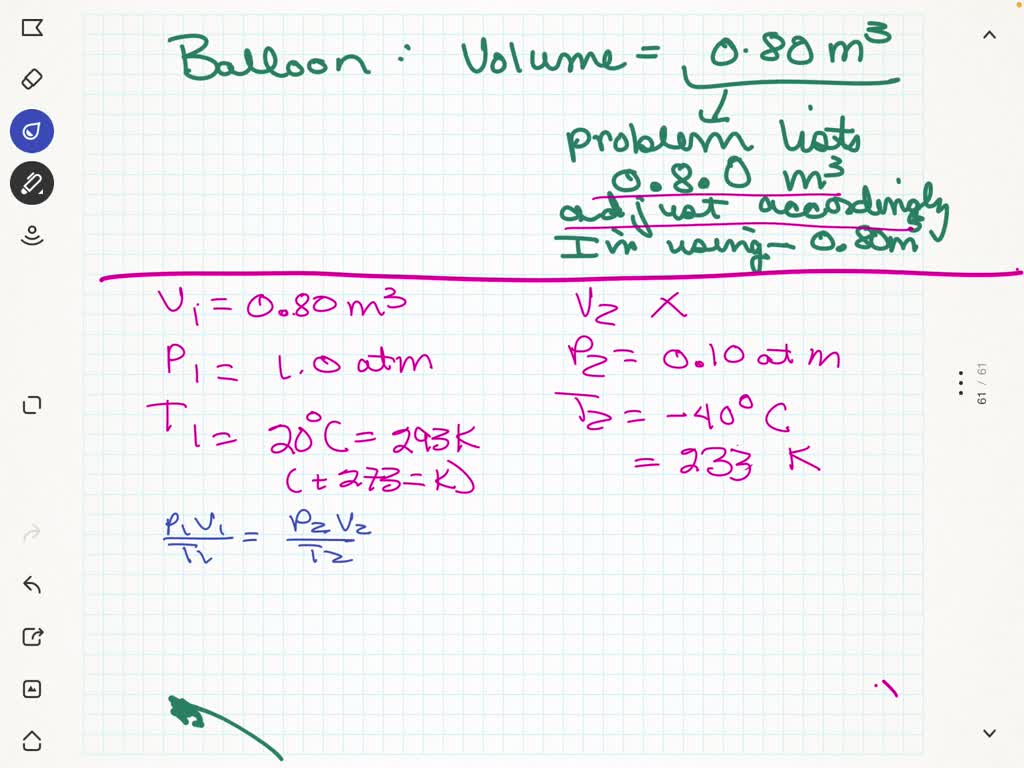 Balloon : Volume = 0.80 m³
problem lists
0.8.0 m³
adjust accordingly
I'm using - 0.80m³
V₁ = 0.80 m³
V₂ X
P₁ = 1.0 atm
P₂ = 0.10 atm
T₁ = 20°C = 293K
(+273=K)
T₂ = -40°C
= 233 K
P₁V₁/T₁ = P₂V₂/T₂
61 / 61